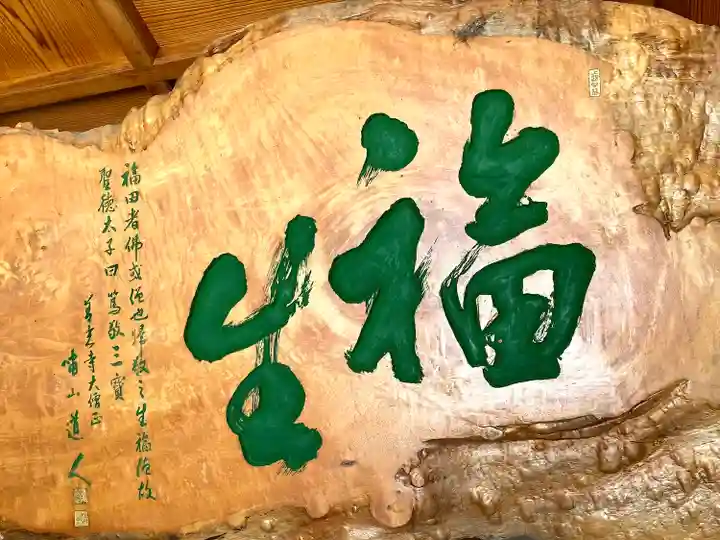 福生
福田者佛或僧也帰敬之生福故
聖徳太子曰篤敬三寶
善光寺大僧正
嘯山道人